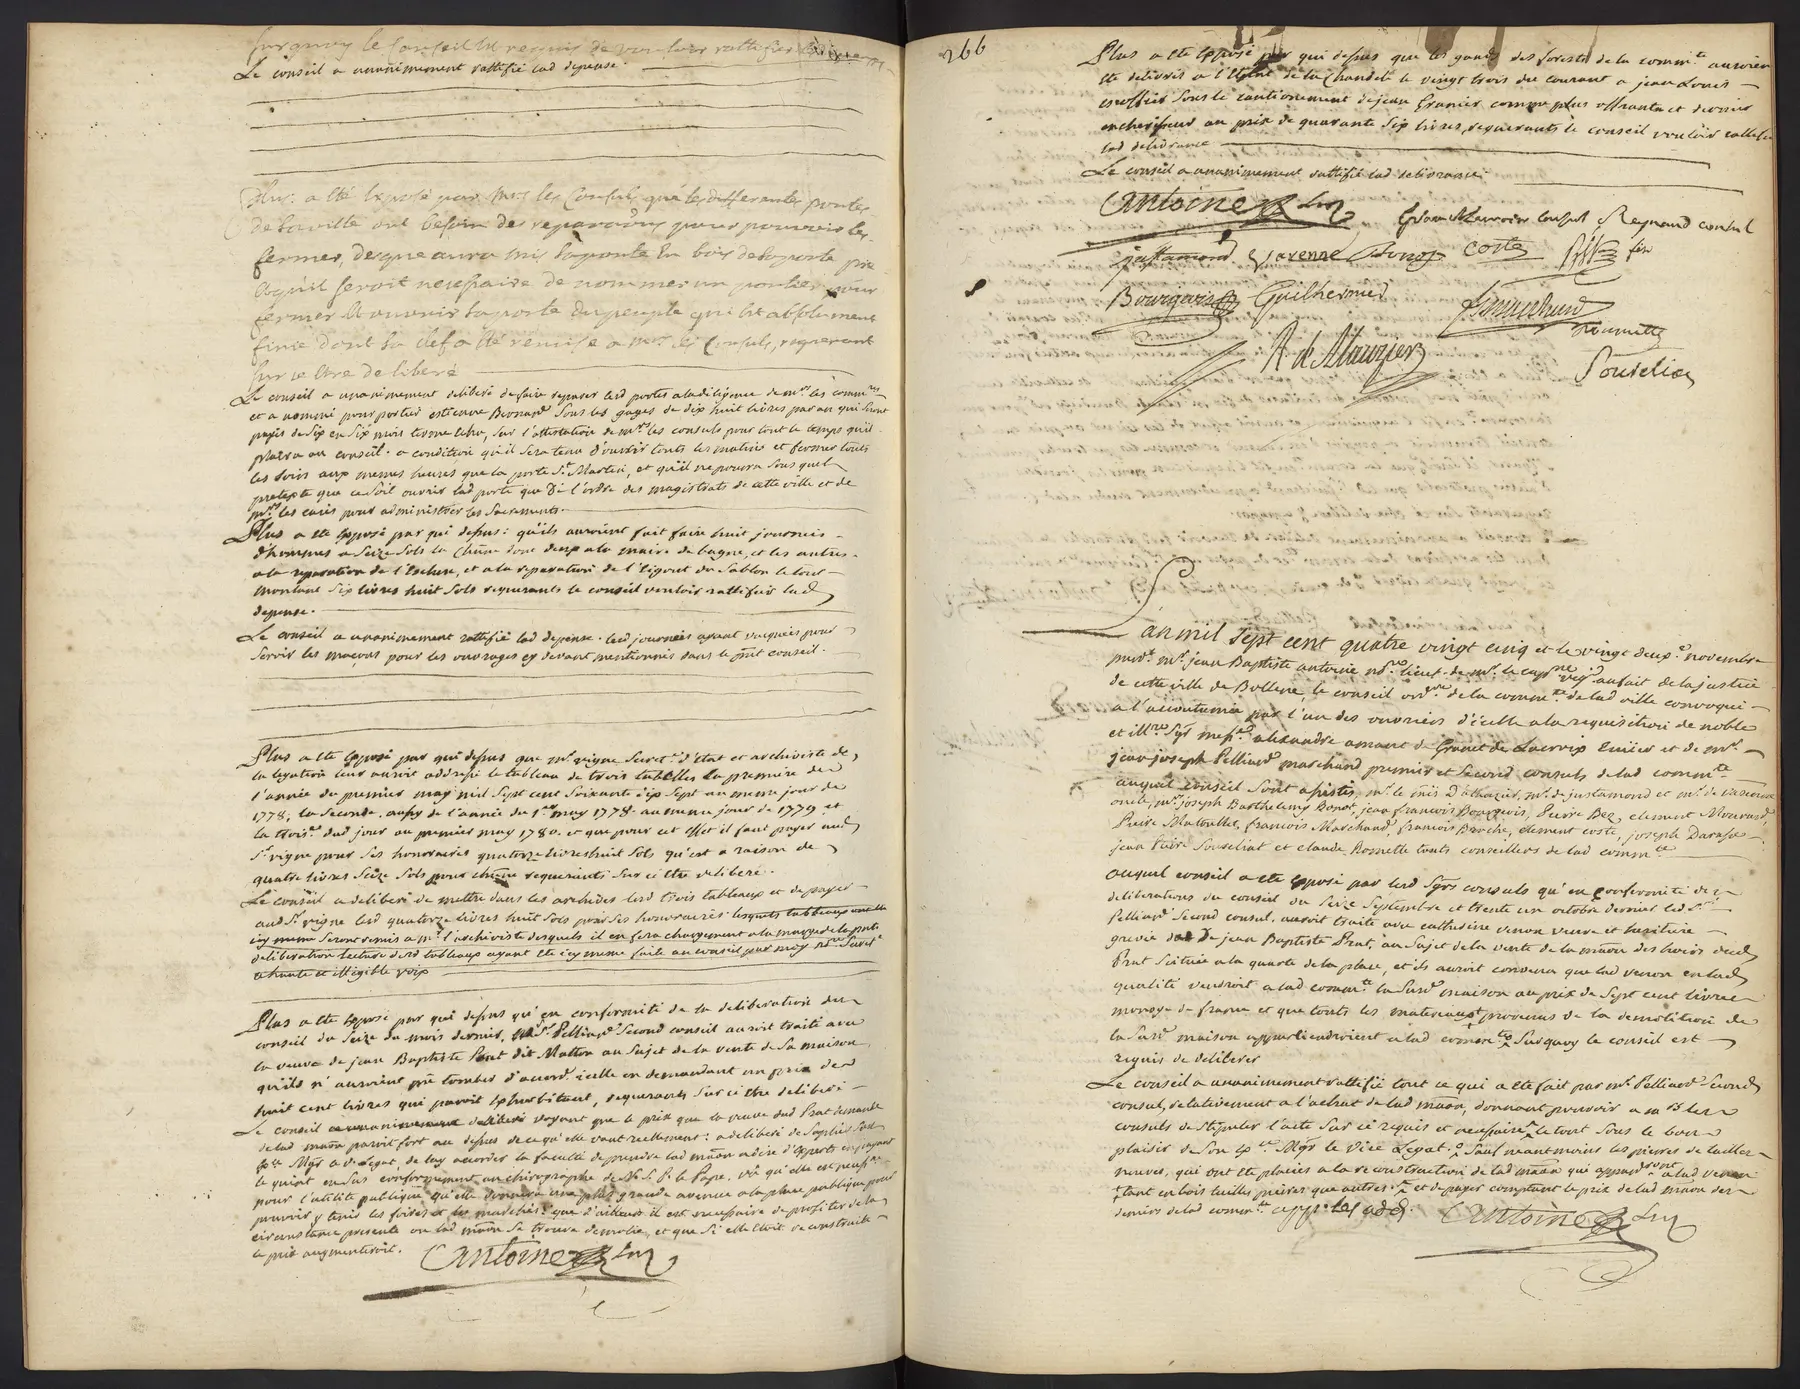 surquoy le conseil est requis de vouloir rattifier
Le conseil a unanimement rattifié lad depense.
Plus. a été exposé par mrs les consuls que les differantes portes
de la ville ont besoin des reparations pour pouvoir les
fermer,
et qu'il seroit necessaire de nommer un portier pour
fermer et ouvrir la porte du peuple qui est absolument
finie dont la clef a été remise a mrs les consuls, requerant
sur ce etre deliberé
Le conseil a unanimement deliberé de faire reparer lesd portes a la diligence de mrs les commres
et a nommé pour portier estienne Bernard sous les gages de dix huit livres par an qui seront
payés de six en six mois terme echu, sur l'attestation de mrs les consuls pour tout le temps qu'il
plaira au conseil. a condition qu'il sera tenu d'ouvrir touts les matins et fermer touts
les soirs aux memes heures que la porte St Martin, et qu'il ne pourra sous quel
pretexte que ce soit ouvrir lad porte que de l'ordre des magistrats de cette ville et de
mrs les curés pour administrer les sacrements.
Plus a été exposé par qui dessus: qu'ils auroient fait faire huit journées
d'hommes a seize sols la chune dont deux a la maire de bagne, et les autres
a la reparation de l'ecluse, et a la reparation de l'egout du sablon le tout
montant six livres huit sols requerants le conseil vouloir rattifier lad
depense.
Le conseil a unanimement rattifié lad depense. lesd journées ayant vacquées pour
servir les maçons pour les ouvrages cy devant mentionnés dans le pnt conseil.
Plus a été exposé par qui dessus que mr vigne secret. d'etat et archiviste de
la legation leur auroit addressé le tableau de trois tabelles la premiere de
l'année du premier may mil sept cent soixante dix sept au meme jour de
1778, la seconde. aussy de l'année du 1er may 1778. au meme jour de 1779 et
la troise. dud jour au premier may 1780. et que pour cet effet il faut payer aud
Sr vigne pour ses honoraires quatorze livres huit sols qu'est a raison de
quatre livres seize sols pour chune requerants sur ce etre deliberé.
Le conseil a deliberé de mettre dans les archives lesd trois tableaux et de payer
aud Sr vigne lesd quatorze livres huit sols pour ses honoraires lesquels tableaux
icy meme seront remis a mr l'archiviste desquels il en fera chargement a la marge de la pnte
deliberation lecture desd tableaux ayant été icy meme faite au conseil par moy nore secrete
a haute et illegible voix
Plus a été exposé par qui dessus qu'en conformité de la deliberation du
conseil du seize du mois dernier, Sr Pelliard second consul auroit traité avec
la veuve de jean Baptiste Prat dit Matton au sujet de la vente de sa maison,
qu'ils n'auroint pû tomber d'accord. icelle en demandant un prix de
huit cent livres qui paroit exhorbitant, requerants sur ce etre deliberé
Le conseil a unanimement deliberé voyant que le prix que la veuve dud Prat demande
de lad maison paroit fort au dessus de ce qu'elle vaut reellement: a deliberé de suplier son
exce Mgr le V. Legat, de luy accorder la faculté de prendre lad maison a dire d'experts en payant
le quint en sus conformement au chirographe de N. S. P. le Pape, vû qu'elle est necesse
pour l'utilité publique qu'elle donnera une plus grande avenue a la place publique pour
pouvoir y tenir les foires et les marchés: que d'ailleurs il est necessaire de profiter de la
circonstance presente ou lad maison se trouve demolie, et que si elle etoit reconstruite
le prix augmenteroit. Cantoine Lieu
266
Plus a été exposé par qui dessus que les gands des forests de la commté auroient
été delivrés a l'etaint de la chandele le vingt trois du courant a jean Louis
sous le cautionnement de jean Granier comme plus offrant et dernier
encherisseur au prix de quarante six livres, requerants le conseil vouloir rattifier
lad delivrance
Le conseil a unanimement rattifié lad delivrance.
Cantoine Lieu
Reynaud consul
justamond Varenne Bonot Coste
Bourgeois Guilhermier
A de Alauzier
Roumette
Sourelias
L'an mil sept cent quatre vingt cinq et le vingt deuxe novembre
pardt mr jean Baptiste antoine nore lieut. de mr le capne viguier au fait de la justice
de cette ville de Bollene le conseil ordre de la commté de lad ville convoqué
a l'accoutumée par l'un des ouvriers d'icelle a la requisition de noble
et illre Sgr messe alexandre amant de Granet de Lacroix Euiier et de mr
jean joseph Pelliard marchand premier et second consuls de lad commté
auquel conseil sont assistés, mr le mis d'alauzier, mr de justamond et mr de varenne
oncle, mrs joseph Barthelemy Bonot, jean francois Bourgeois, Pierre Bez, clement Mourard,
Pierre Matoullet, francois Marchand, francois Broche, clement coste, joseph Darasse
jean Pierre Soureliat et claude Romette touts conseillers de lad commté
auquel conseil a été exposé par lesd Sgrs consuls qu'en conformité des
deliberations du conseil du seize septembre et trente un octobre dernier led Sr
Pelliard second consul, auroit traité avec catherine venon veuve et heritiere
grevée de jean Baptiste Prat, au sujet de la vente de la maison des hoirs dud
Prat scituée a la quarte de la place, et ils auroit convenu que lad venon en lad
qualité vendroit a lad commté la susd maison au prix de sept cent livres
monoye de france et que touts les materiaux provenus de la demolition de
la susd maison appartiendroient a lad commté surquoy le conseil est
requis de deliberer
Le conseil a unanimement rattifié tout ce qui a été fait par mr Pelliard second
consul, relativement a l'achat de lad maison, donnant pouvoir a mrs les
consuls de stipuler l'acte sur ce requis et necessaire le tout sous le bon
plaisir de son exce Mgr le Vice Legat. Sauf neantmoins les pierres de taille
neuves, qui ont été placées a la reconstruction de lad maison qui appartient a lad venon
tant en bois tuilles pierres que autres. et de payer comptant le prix de lad maison des
deniers de lad commté
Cantoine Lieu